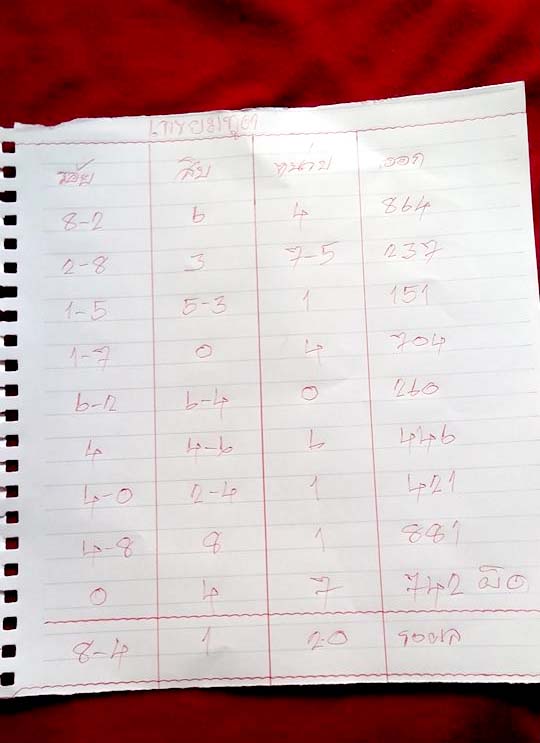 เทรยมชูด
ร้อย สิบ หน่วย ออก
8-2 6 4 864
2-8 3 7-5 237
1-5 5-3 1 151
1-7 0 4 704
6-2 6-4 0 260
4 4-6 6 446
4-0 2-4 1 421
4-8 8 1 881
0 4 7 742 ผิด
8-4 1 2-0 รอผล